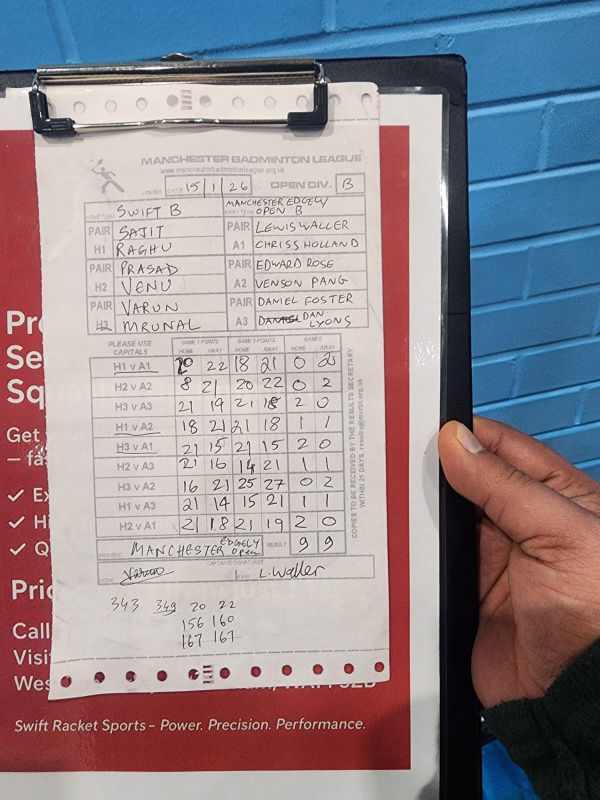 MANCHESTER BADMINTON LEAGUE
www.manchesterbadmintonleague.org.uk
DATE 15 | 1 | 26 OPEN DIV. B
HOME TEAM SWIFT B
AWAY TEAM MANCHESTER EDGELY OPEN B
PAIR H1 SAJIT RAGHU
PAIR A1 LEWIS WALLER CHRISS HOLLAND
PAIR H2 PRASAD VENU
PAIR A2 EDWARD ROSE VENSON PANG
PAIR H3 VARUN MRUNAL
PAIR A3 DANIEL FOSTER DAN LYONS
PLEASE USE CAPITALS
GAME 1 POINTS GAME 2 POINTS GAMES
HOME AWAY HOME AWAY HOME AWAY
H1 v A1 20 22 18 21 0 2
H2 v A2 8 21 20 22 0 2
H3 v A3 21 19 21 18 2 0
H1 v A2 18 21 21 18 1 1
H3 v A1 21 15 21 15 2 0
H2 v A3 21 16 14 21 1 1
H3 v A2 16 21 25 27 0 2
H1 v A3 21 14 15 21 1 1
H2 v A1 21 18 21 19 2 0
WINNERS MANCHESTER EDGELY Open RESULT 9 9
CAPTAIN'S SIGNATURES
HOME Varun
AWAY L. Waller
COPIES TO BE RECEIVED BY THE RESULTS SECRETARY
WITHIN 21 DAYS.
343 349 20 22
156 160
167 167
Pr
Se
Sq
Get
– fas
✓ Ex
✓ Hi
✓ Q
Pric
Call
Visi
Wes
Swift Racket Sports – Power. Precision. Performance.